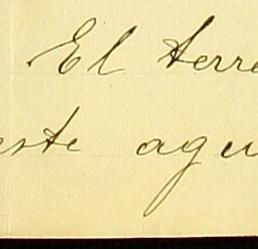 El terre
este agu